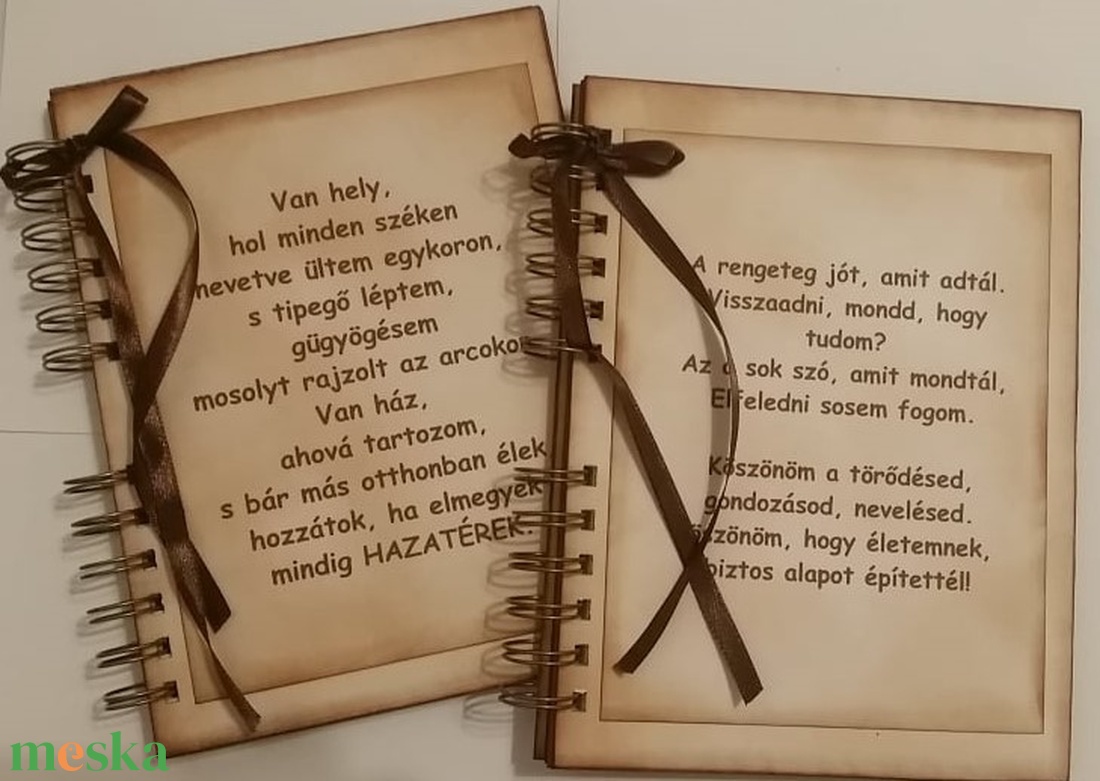 Van hely,
hol minden széken
nevetve ültem egykoron,
s tipegő léptem,
gügyögésem
mosolyt rajzolt az arcokon
Van ház,
ahová tartozom,
s bár más otthonban élek
hozzátok, ha elmegyek
mindig HAZATÉREK.
A rengeteg jót, amit adtál.
Visszaadni, mondd, hogy
tudom?
Az a sok szó, amit mondtál,
Elfeledni sosem fogom.
Köszönöm a törődésed,
gondozásod, nevelésed.
Köszönöm, hogy életemnek,
biztos alapot építettél!
meska